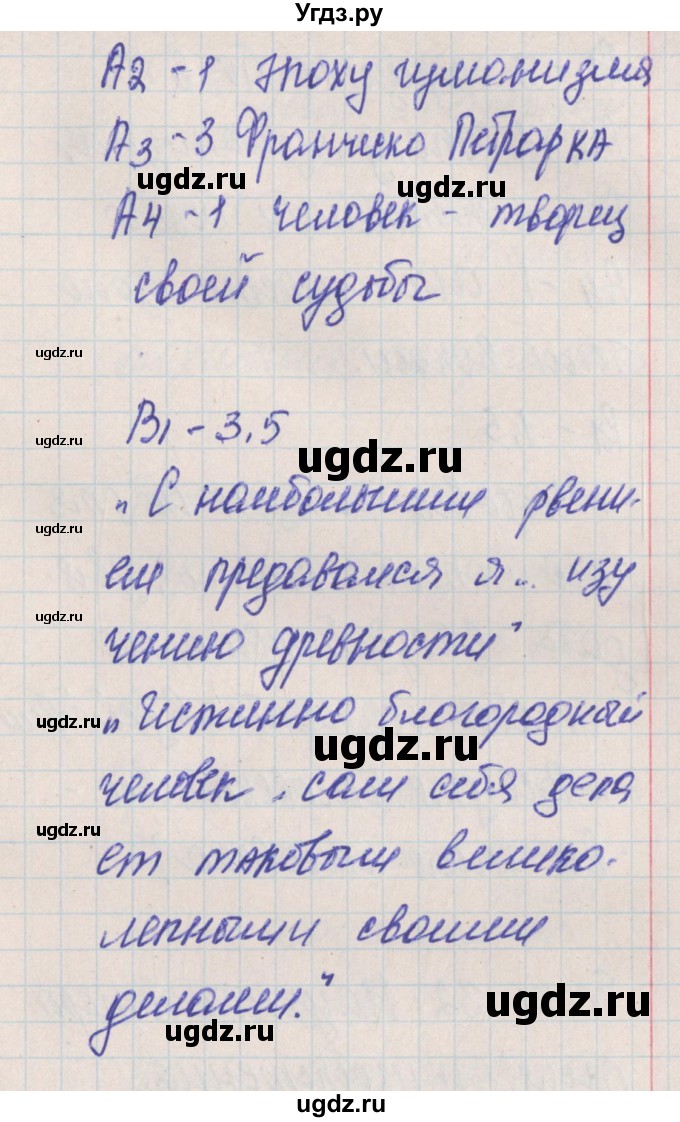 Угдз.ру
А2 - 1 Эпоху гуманизма
А3 - 3 Франческо Петрарка
ugdz.ru
ugdz.ru
А4 - 1 человек - творец
своей судьбы
ugdz.ru
В1 - 3,5
ugdz.ru
ugdz.ru
„С наибольшим рвени-
ugdz.ru
ем предавался я... изу
ugdz.ru
чению древности"
„Истинно благородный
ugdz.ru
ugdz.ru
человек, сам себя дела
ugdz.ru
ет таковым велико-
лепными своими
делами."
ugdz.ru
ugdz.ru
ugdz.ru